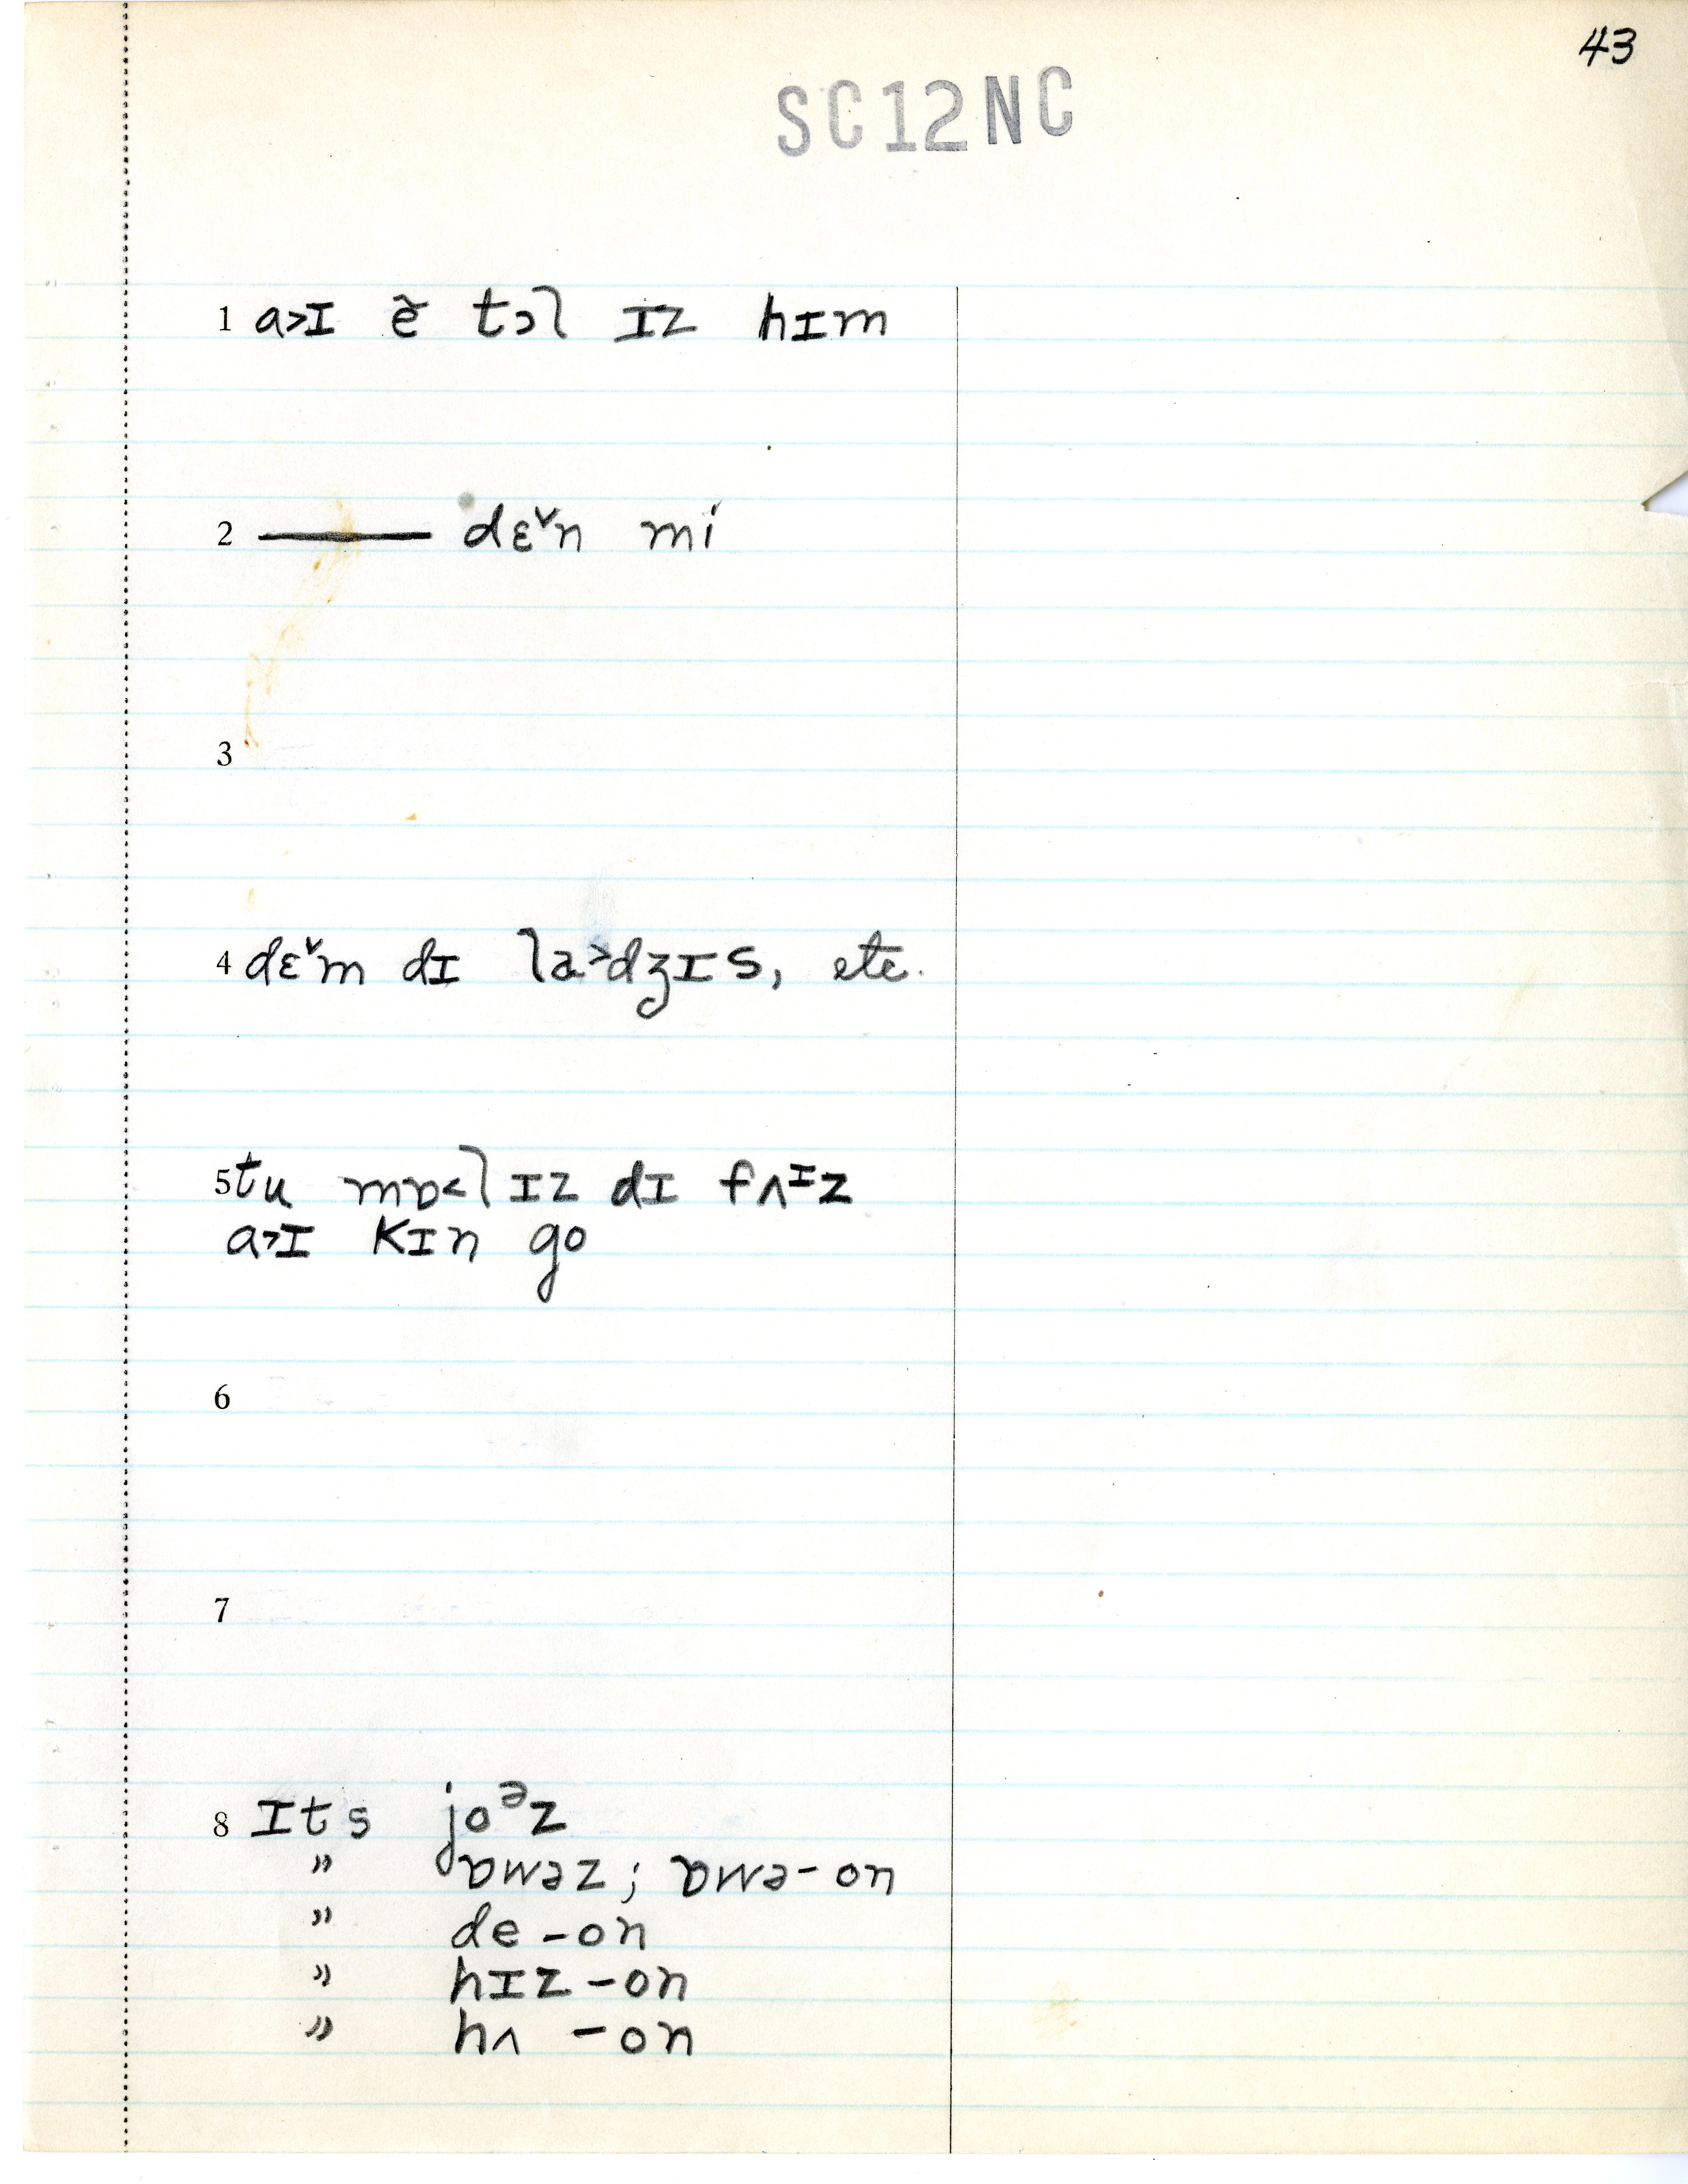 43
SC12NC
1 a˃ɪ ẽ tɔl ɪz hɪm
2 —— dɛ˅n mi
3
4 dɛ˅m dɪ la˃dʒɪs, etc.
5 tu mɒ˂l ɪz dɪ fʌᶦz
a˃ɪ kɪn go
6
7
8 ɪts joᵊz
" ɒwəz; ɒwə-on
" de-on
" hɪz-on
" hʌ-on